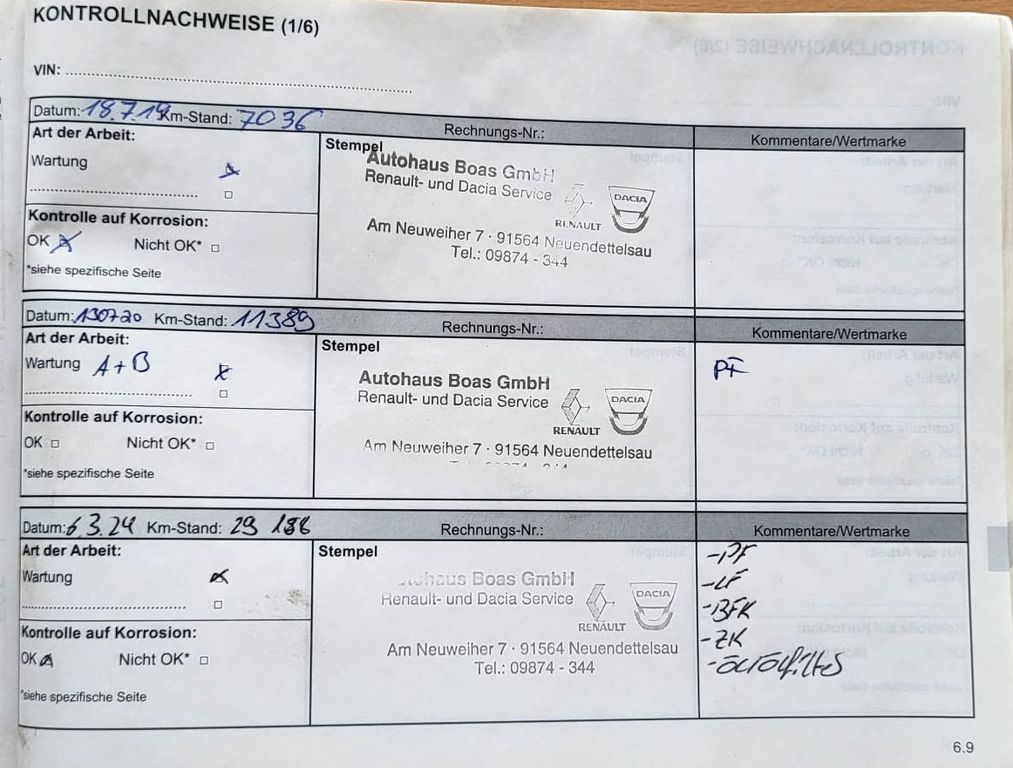 KONTROLLNACHWEISE (1/6)
VIN: ..........
Datum: 18.7.19 Km-Stand: 7036
Rechnungs-Nr.:
Kommentare/Wertmarke
Art der Arbeit:
Wartung
Kontrolle auf Korrosion:
OK Nicht OK*
*siehe spezifische Seite
Stempel
Autohaus Boas GmbH
Renault- und Dacia Service
RENAULT
DACIA
Am Neuweiher 7 · 91564 Neuendettelsau
Tel.: 09874 - 344
Datum: 130720 Km-Stand: 11389
Rechnungs-Nr.:
Kommentare/Wertmarke
Art der Arbeit:
Wartung A+B
Kontrolle auf Korrosion:
OK Nicht OK*
*siehe spezifische Seite
Stempel
Autohaus Boas GmbH
Renault- und Dacia Service
RENAULT
DACIA
Am Neuweiher 7 · 91564 Neuendettelsau
PF
Datum: 6.3.24 Km-Stand: 29 186
Rechnungs-Nr.:
Kommentare/Wertmarke
Art der Arbeit:
Wartung
Kontrolle auf Korrosion:
OK Nicht OK*
*siehe spezifische Seite
Stempel
Autohaus Boas GmbH
Renault- und Dacia Service
RENAULT
DACIA
Am Neuweiher 7 · 91564 Neuendettelsau
Tel.: 09874 - 344
-PF
-LF
-BFK
-ZK
6.9